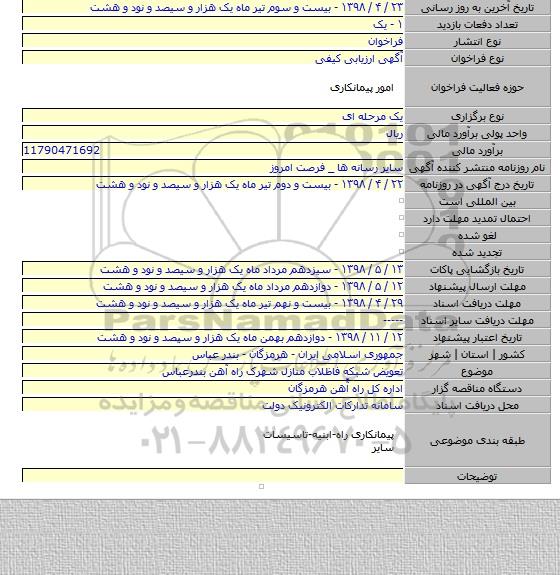 تاریخ آخرین به روز رسانی ۲۳ / ۴ / ۱۳۹۸ - بیست و سوم تیر ماه یک هزار و سیصد و نود و هشت
تعداد دفعات بازدید ۱ - یک
نوع انتشار فراخوان
نوع فراخوان آگهی ارزیابی کیفی
حوزه فعالیت فراخوان امور پیمانکاری
نوع برگزاری یک مرحله ای
واحد پولی برآورد مالی ریال
برآورد مالی 11790471692
نام روزنامه منتشر کننده آگهی سایر رسانه ها _ فرصت امروز
تاریخ درج آگهی در روزنامه ۲۲ / ۴ / ۱۳۹۸ - بیست و دوم تیر ماه یک هزار و سیصد و نود و هشت
بین المللی است
احتمال تمدید مهلت دارد
لغو شده
تجدید شده
تاریخ بازگشایی پاکات ۱۳ / ۵ / ۱۳۹۸ - سیزدهم مرداد ماه یک هزار و سیصد و نود و هشت
مهلت ارسال پیشنهاد ۱۲ / ۵ / ۱۳۹۸ - دوازدهم مرداد ماه یک هزار و سیصد و نود و هشت
مهلت دریافت اسناد ۲۹ / ۴ / ۱۳۹۸ - بیست و نهم تیر ماه یک هزار و سیصد و نود و هشت
مهلت دریافت سایر اسناد -----
ParsNamadData
تاریخ اعتبار پیشنهاد ۱۲ / ۱۱ / ۱۳۹۸ - دوازدهم بهمن ماه یک هزار و سیصد و نود و هشت
کشور | استان | شهر جمهوری اسلامی ایران - هرمزگان - بندر عباس
موضوع تعویض شبکه فاظلاب منازل شهرک راه آهن بندرعباس
دستگاه مناقصه گزار اداره کل راه آهن هرمزگان
محل دریافت اسناد سامانه تدارکات الکترونیک دولت
پایگاه اطلاع رسانی مناقصه و مزایده
طبقه بندی موضوعی پیمانکاری راه-ابنیه-تاسیسات
سایر
۰۲۱-۸۸۳۴۹۶۷۰-۵
توضیحات